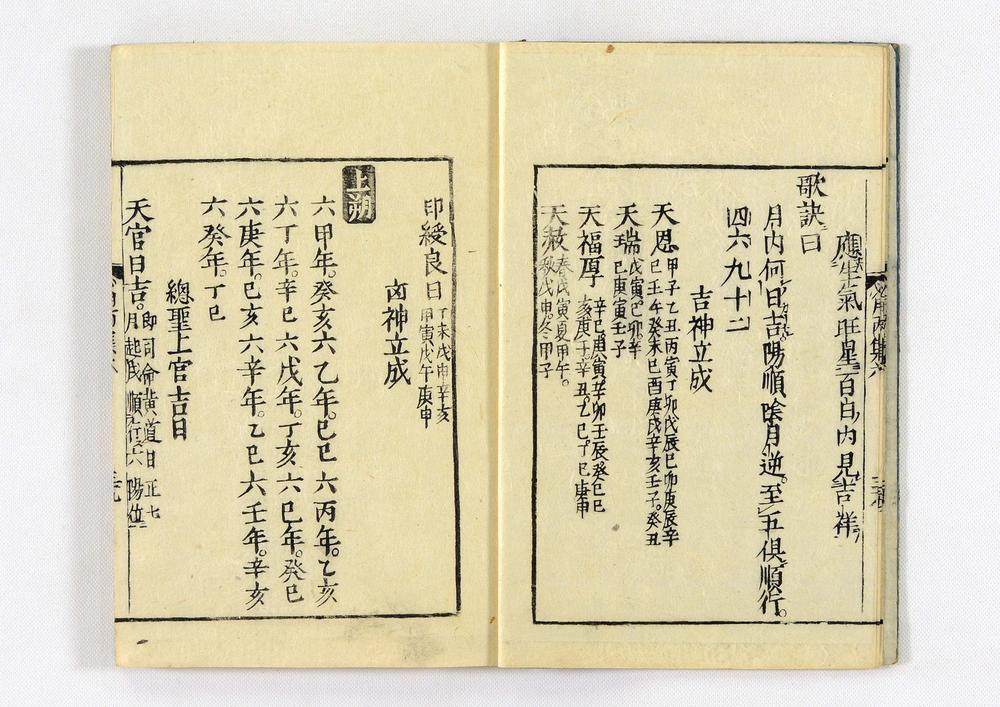 應生氣旺星百日内見吉祥
歌訣曰
月内何日吉陽順陰月逆至五俱順行
四六九十二
吉神立成
天恩 甲子乙丑丙寅丁卯戊辰巳卯庚辰辛
巳壬午癸未巳酉庚戌辛亥壬子癸丑
天瑞 戊寅巳卯辛
巳庚寅壬子
天福厚 辛巳庚寅辛卯壬辰癸巳巳
亥庚子辛丑乙丁巳庚申
天赦 春戊寅夏甲午
秋戊申冬甲子
印綬良日 丁未戊申辛亥
甲寅戊午庚申
凶神立成
上朔
六甲年癸亥六乙年巳巳六丙年乙亥
六丁年辛巳六戊年丁亥六巳年癸巳
六庚年巳亥六辛年乙巳六壬年辛亥
六癸年丁巳
總聖上官吉日
天官日吉 即司命黄道日正七
月起戌順行六陽位